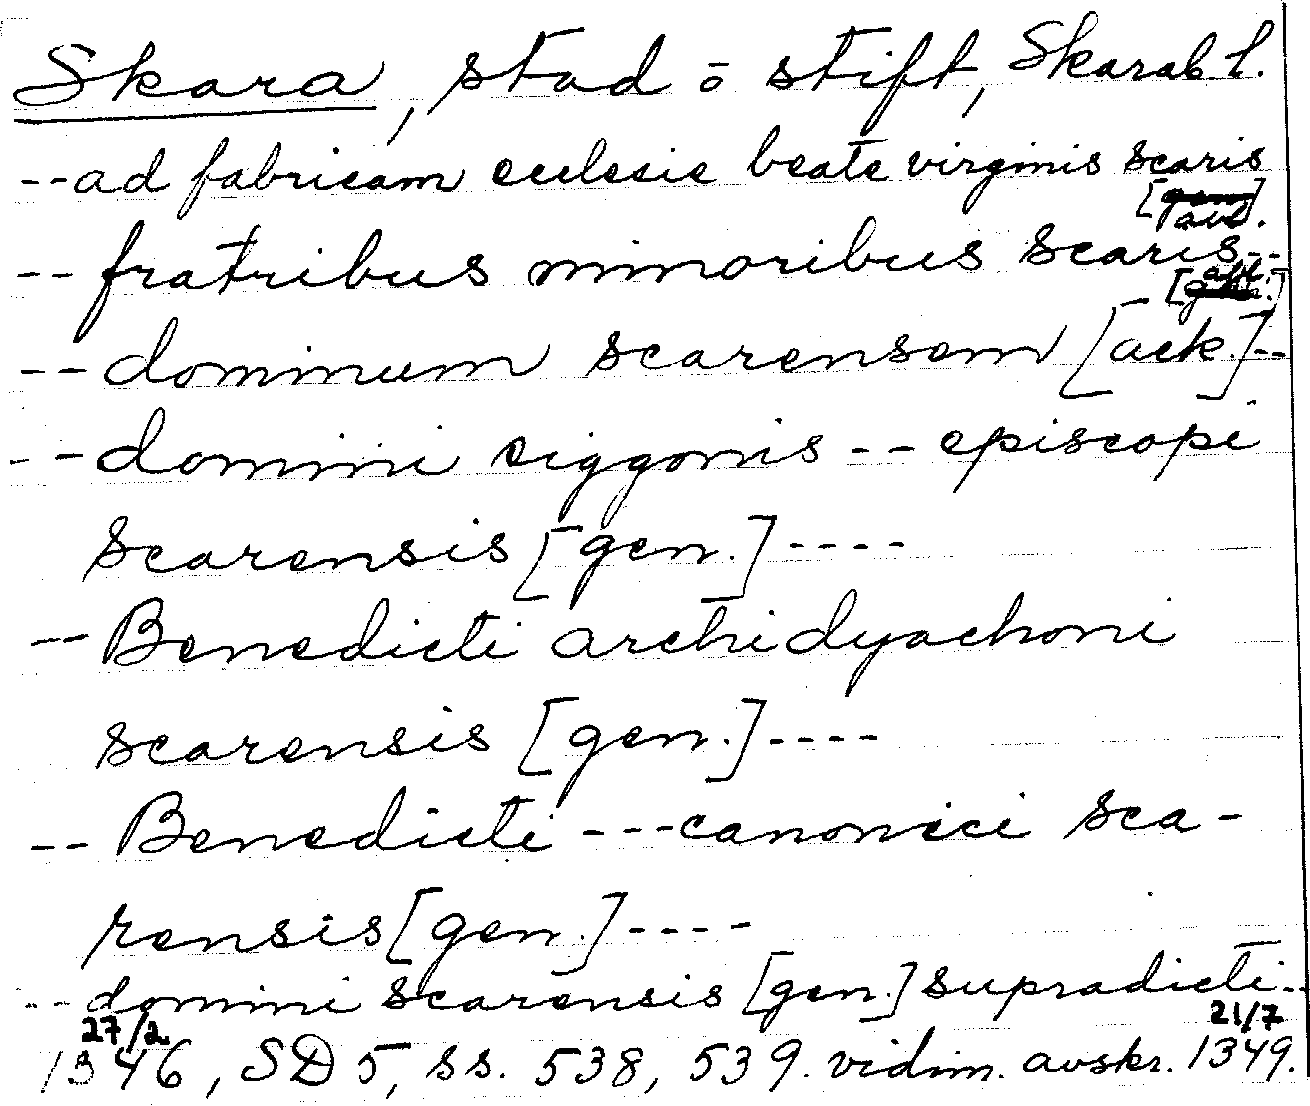 Skara, stad o stift, Skarab l.
--ad fabricam ecclesie beate virginis scaris
[abl.
-- fratribus minoribus scaris--
[abl.]
-- dominum scarensem [ack.]--
-- domini siggonis -- episcopi
scarensis [gen.]----
-- Benedicti archidyachoni
scarensis [gen.]----
-- Benedicti ---canonici sca-
rensis [gen.]----
-- domini scarensis [gen.] supradicti--
27/2. 21/7
1346, SD 5, ss. 538, 539. vidim. avskr. 1349.